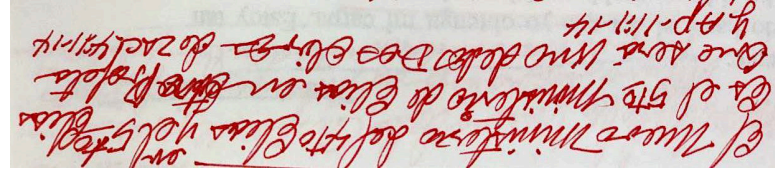 El Nuevo Ministerio del 4to Elias y el 5to Elias
es el 5to Ministerio de Elias en otro Profeta
Que será Uno de los Dos Olivos de Zac. 4:1-14
y Ap. 11:1-14